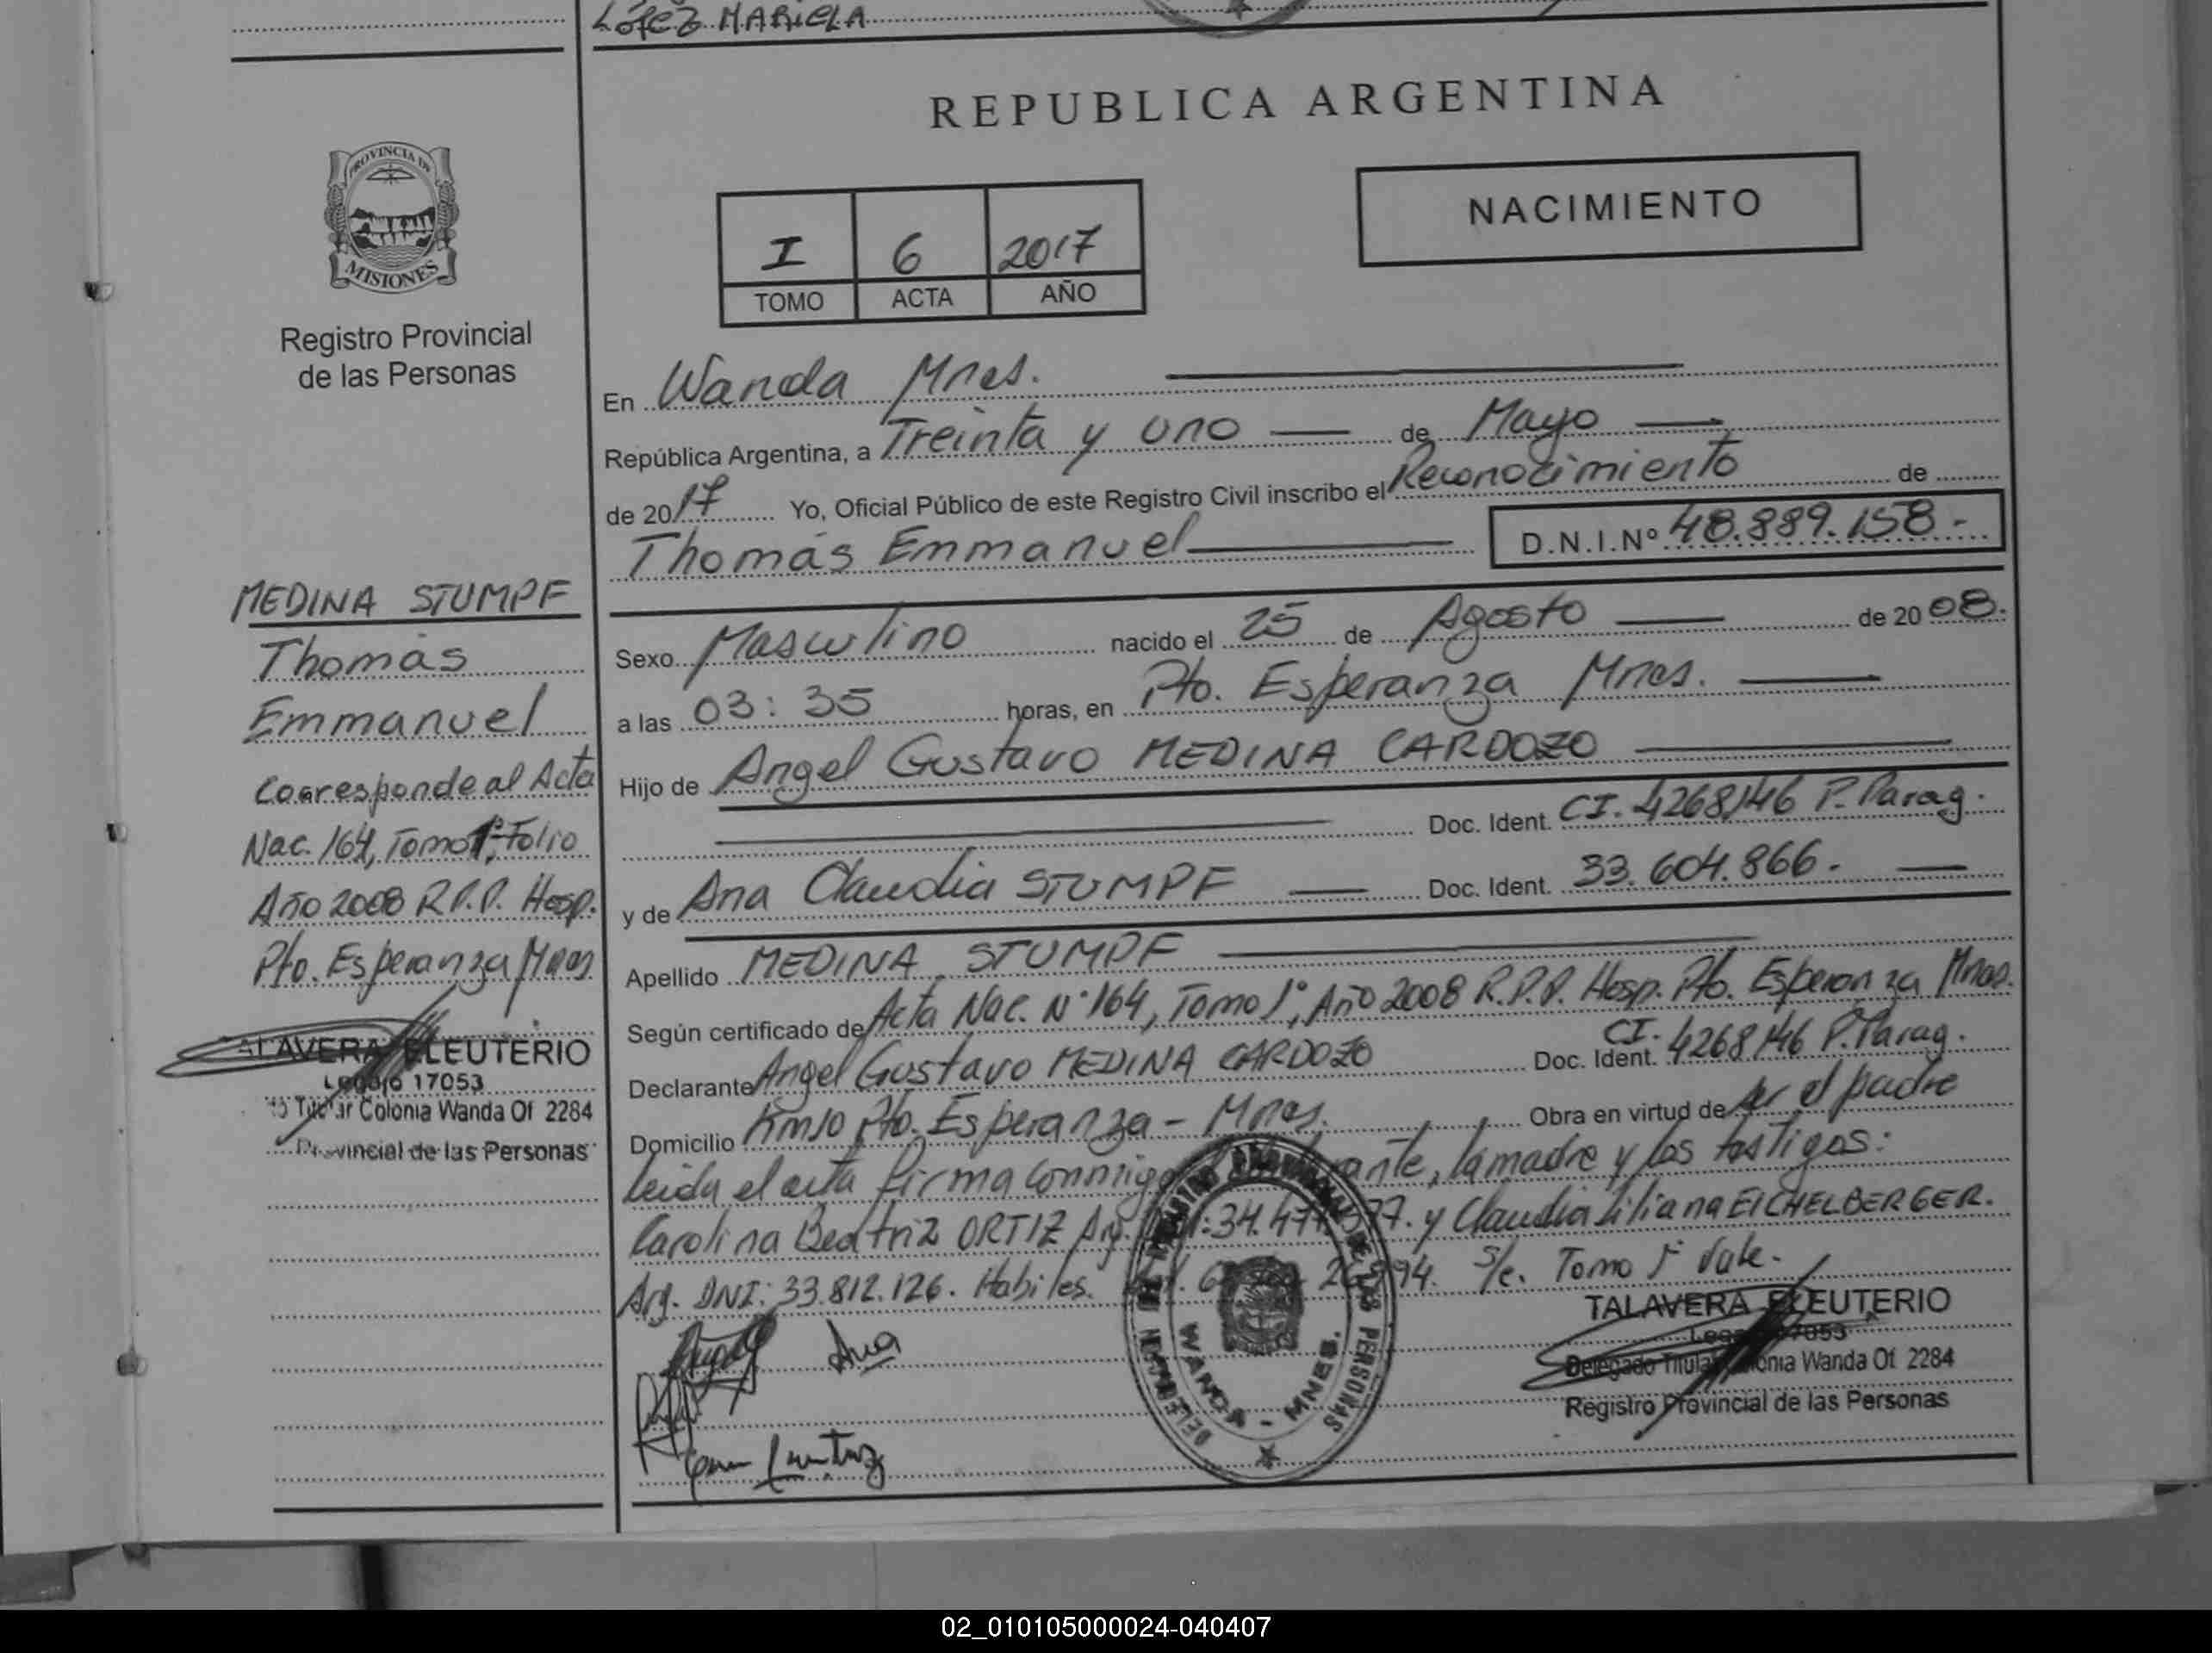 López MARIELA
REPUBLICA ARGENTINA
PROVINCIA DE
MISIONES
Registro Provincial
de las Personas
I 6 2017
TOMO ACTA AÑO
NACIMIENTO
En Wanda Mnes.
República Argentina, a Treinta y uno de Mayo
de 2017 Yo, Oficial Público de este Registro Civil inscribo el Reconocimiento de
Thomás Emmanuel D.N.I.Nº 48.889.158.-
MEDINA STUMPF
Thomás
Emmanuel
Corresponde al Acta
Nac. 164, Tomo 1º, Folio
Año 2008 R.P.P. Hosp.
Pto. Esperanza Mnes
TALAVERA ELEUTERIO
Legajo 17053
Titular Colonia Wanda Of 2284
Provincial de las Personas
Sexo Masculino nacido el 25 de Agosto de 2008.
a las 03:35 horas, en Pto. Esperanza Mnes.
Hijo de Angel Gustavo MEDINA CARDOZO
Doc. Ident. CI. 4268146 P. Parag.
y de Ana Claudia STUMPF Doc. Ident. 33.604.866.
Apellido MEDINA STUMPF
Según certificado de Acta Nac. Nº 164, Tomo 1º, Año 2008 R.P.P. Hosp. Pto. Esperanza Mnes.
Declarante Angel Gustavo MEDINA CARDOZO Doc. Ident. CI. 4268146 P. Parag.
Domicilio Km10 Pto. Esperanza - Mnes. Obra en virtud de ser el padre
leida el acta firma conmigo la madre y los testigos:
Carolina Beatriz ORTIZ Arg. y Claudia Liliana EICHELBERGER.
Arg. DNI: 33.812.126. Habiles. S/e. Tomo 1º Vale.
Ana
WANDA - MNES.
DE LAS PERSONAS
TALAVERA ELEUTERIO
Legajo 17053
Delegado Titular Colonia Wanda Of 2284
Registro Provincial de las Personas
02_010105000024-040407